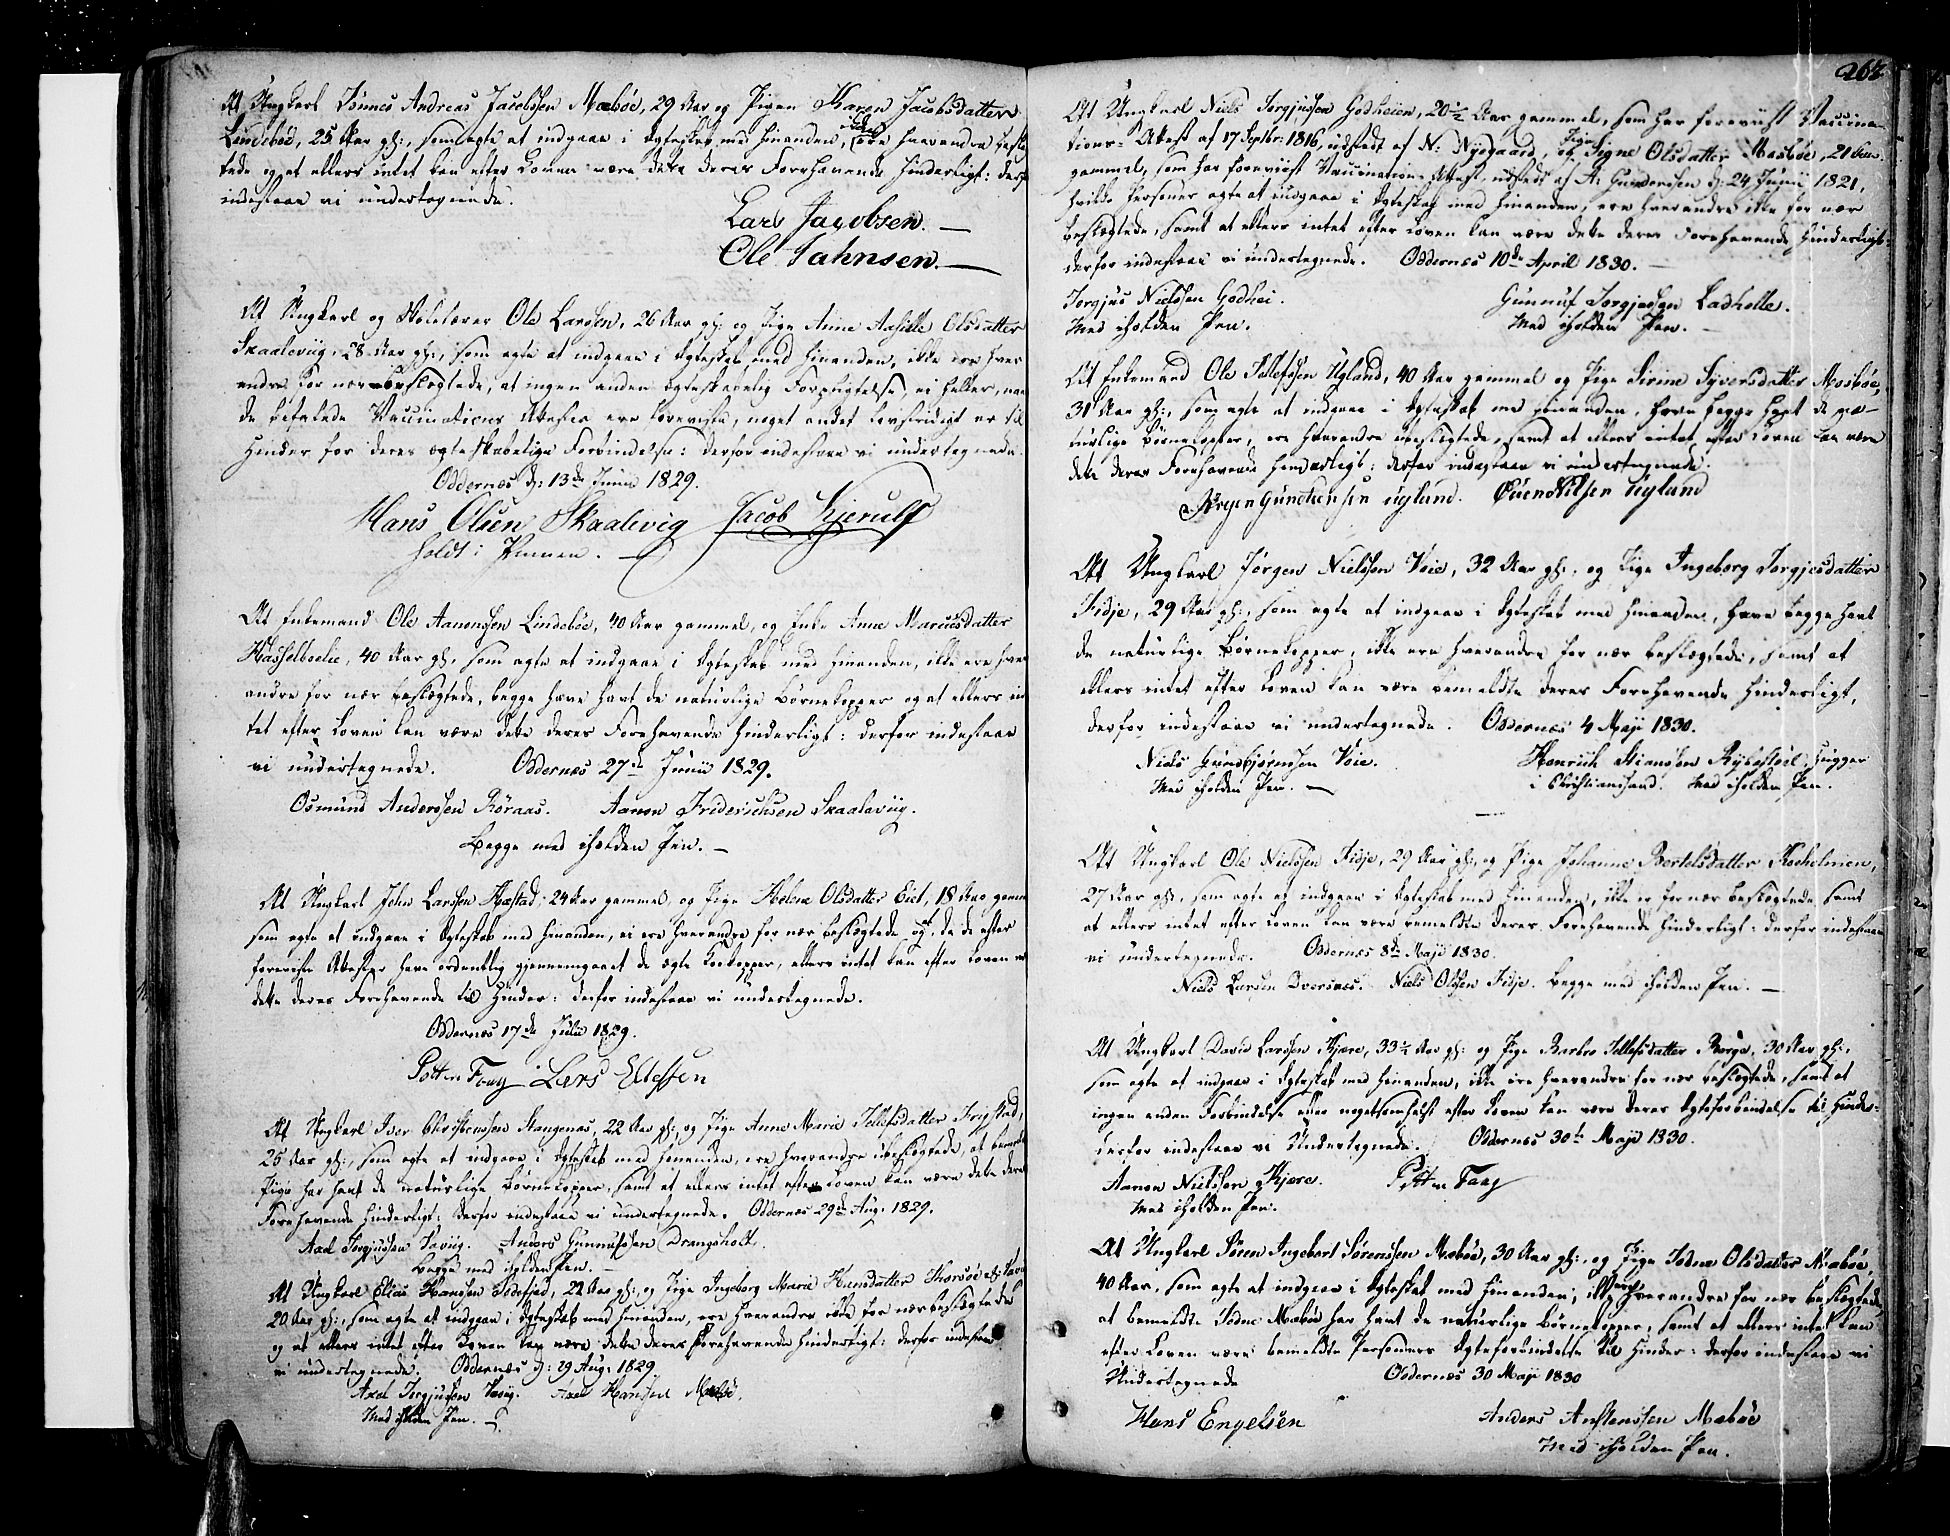 At Ungkarl Tønnes Andreas Jacobsen Mæbøe, 29 Aar og Pigen Karen Jacobsdatter
Lindebøe, 25 Aar gl:, som agte at indgaae i Ægteskab med hinanden, ikke ere hverandre beslæg-
tede og at ellers intet kan efter Loven være dette deres Forehavende hinderligt: derfor
indestaae vi undertegnede.
Lars Jacobsen.
Ole Jahnsen.
At Ungkarl og Skolelærer Ole Larssen, 26 Aar gl: og Pige Anne Aasille Olsdatter
Skaaleviig, 28 Aar gl:, som agte at indgaae i Ægteskab med hinanden, ikke ere hver
andre for nær beslægtede, at ingen anden ægteskabelig Forpligtelse, ei heller, naar
de befalede Vaccinations Attester ere foreviste, noget andet lovstridigt er til
Hinder for deres ægteskabelige Forbindelse: derfor indestaae vi undertegnede.
Oddernes d: 13de Junii 1829.
Hans Olsen Skaalevig Jacob Kjerulf
holdt i Pennen.
At Enkemand Ole Aanensen Lindebøe, 40 Aar gammel, og Enke Anne Marcusdatter
Hasselbælie, 40 Aar gl:, som agte at indgaae i Ægteskab med hinanden, ikke ere hver
andre for nær beslægtede, begge have havt de naturlige Børnekopper og at ellers in
tet efter Loven kan være dette deres Forehavende hinderligt: derfor indestaae
vi undertegnede. Oddernes 27de Junii 1829.
Osmund Anderssen Røraas. Aanon Friderichsen Skaaleviig.
Begge med iholden Pen.
At Ungkarl John Larssen Hæstad, 24 Aar gammel, og Pige Helene Olsdatter Eiet, 18 Aar gamm
som agte at indgaae i Ægteskab med hinanden, ei ere hverandre for nær beslægtede, og at da de efter
foreviste Attester have ordentlig gjennemgaaet de ægte Kokopper, ellers intet kan efter Loven være
dette deres Forehavende til Hinder: derfor indestaae vi undertegnede.
Oddernes 17de Julii 1829.
Petter Faay Lars Ellefsen
At Ungkarl Iver Christensen Stangenæs, 22 Aar gl: og Pige Anne Marie Tellefsdatter Fripstad,
25 Aar gl:, som agte at indgaae i Ægteskab med hinanden, ere hverandre ubeslægtede, at bemeldte
Pige har havt de naturlige Børnekopper, samt at ellers intet efter Loven kan være dette deres
Forehavende hinderligt: derfor indestaae vi undertegnede. Oddernes 29de Aug: 1829.
Axel Jørgjussen Vaviig. Anders Gunnufsen Drangsholt.
Begge med iholden Pen.
At Ungkarl Elias Hanssen Todefied, 22 Aar gl:, og Pige Ingeborg Marie Hansdatter
20 Aar gl:, som agte at indgaae i Ægteskab med hinanden, ere hverandre ikke for nær beslægtede
og at ellers intet efter Loven kan være dette deres Forehavende hinderligt: derfor indestaae
vi undertegnede. Oddernes d: 29 Aug: 1829.
Axel Jørgjussen Vaviig. Axel Hanssen Mæbøe.
med iholden Pen.
262
At Ungkarl Niels Jørgjussen Godheien, 20½ Aar gammel, som har foreviist Vaccina-
tions-Attest af 17 Septbr: 1816, udstedt af N: Nyegaard, og Pige Signe Olsdatter Mosbøe, 21 Aar
gammel, som har foreviist Vaccinations-Attest, udstedt af A: Gundersen d: 24 Junii 1821,
hvilke Personer agte at indgaae i Ægteskab med hinanden, ere hverandre ikke for nær
beslægtede, samt at ellers intet efter Loven kan være dette deres Forehavende hinderligt:
derfor indestaae vi undertegnede. Oddernes 10de April 1830.
Jørgjus Nielssen Godhei. Gunnuf Jørgjussen Ladholle.
Med iholden Pen. Med iholden Pen.
At Enkemand Ole Tellefssen Ugland, 40 Aar gammel og Pige Sirine Syversdatter Mosbøe,
31 Aar gl:, som agte at indgaae i Ægteskab med hinanden, have begge havt de na-
turlige Børnekopper, ere hverandre ubeslægtede, samt at ellers intet efter Loven kan være
dette deres Forehavende hinderligt: derfor indestaae vi undertegnede.
Jørgen Gundersen Uglund. Evend Nilsen Uglund
At Ungkarl Jørgen Nielssen Voie, 32 Aar gl:, og Pige Ingeborg Jørgjesdatter
Fidje, 29 Aar gl:, som agte at indgaae i Ægteskab med hinanden, have begge havt
de naturlige Børnekopper, ikke ere hverandre for nær beslægtede, samt at
ellers intet efter Loven kan være bemeldte deres Forehavende hinderligt,
derfor indestaae vi undertegnede. Oddernes 4 Maji 1830.
Niels Gundbjørnsen Voie. Henrich Stiansen Rybestøel, Hugger
Med iholden Pen. i Christiansand. Med iholden Pen.
At Ungkarl Ole Nielssen Fidje, 29 Aar gl:, og Pige Johanne Bertelsdatter Kocholmen,
27 Aar gl:, som agte at indgaae i Ægteskab med hinanden, ikke er for nær beslægtede, samt
at ellers intet efter Loven kan være bemeldte deres Forehavende hinderligt: derfor indestaae
vi undertegnede. Oddernes 8de Maji 1830.
Niels Larsen Dversnes. Niels Olssen Fidje. begge med iholden Pen.
At Ungkarl David Larssen Kjære, 33½ Aar gl: og Pige Barbro Tellefsdatter Berge, 30 Aar gl:,
som agte at indgaae i Ægteskab med hinanden, ikke ere hverandre for nær beslægtede, samt at
ingen anden Forbindelse eller nogetsomhelst efter Loven kan være deres Ægteforbindelse til Hinder:
derfor indestaae vi Undertegnede. Oddernes 30te Maji 1830.
Aanon Nielssen Kjære. Petter Faay
Med iholden Pen.
At Ungkarl Søren Ingebort Sørenssen Mæbøe, 30 Aar gl:, og Pige Todne Olsdatter Mæbøe,
40 Aar, som agte at indgaae i Ægteskab med hinanden, ikke ere hverandre for nær beslægtede,
at bemeldte Todne Mæbøe har havt de naturlige Børnekopper, samt at ellers intet kan
efter Loven være bemeldte Personers Ægteforbindelse til Hinder: derfor indestaae vi
Undertegnede Oddernes 30 Maji 1830
Hans Engelsen Anders Anstensen Mæbøe
Med iholden Pen.